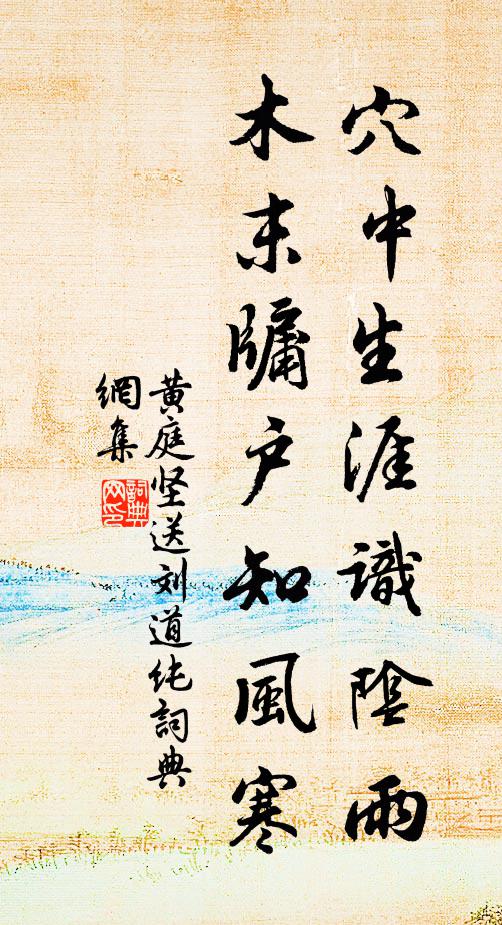 穴中生涯識陰雨
木末牖户知風寒
黄庭坚送刘道纯詞典
網集
詞典
网印